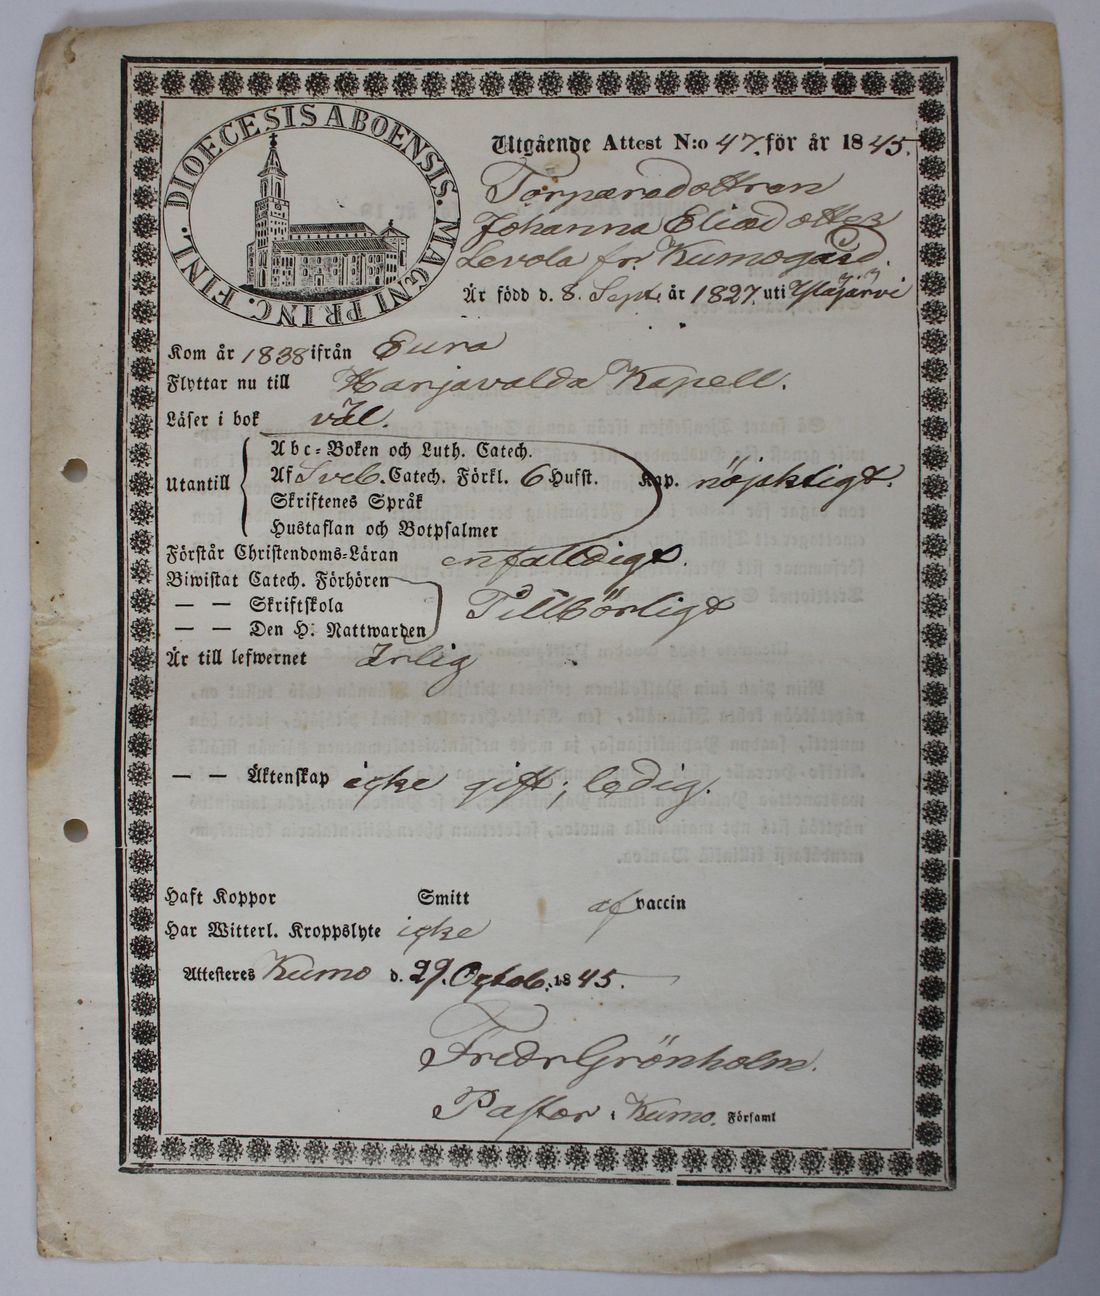 DIOECESIS ABOENSIS. MAGNI PRINC. FINL.
Utgående Attest N:o 47. för år 1845.
Torparedottren
Johanna Eliædotter
Levola fr. Kumogård.
Är född d. 8. Sept. år 1827. uti Yläjärvi
Kom år 1838 ifrån Eura
Flyttar nu till Harjavalda Kapell.
Läser i bok väl.
Utantill
Abc-Boken och Luth. Catech.
Af Sveb. Catech. Förkl. 6 Hufst. Kap. nöjaktigt.
Skriftenes Språk
Hustaflan och Botpsalmer
Förstår Christendoms-Läran enfaldigt.
Biwistat Catech. Förhören
— — Skriftskola Tillbörligt
— — Den H. Nattwarden
Är till lefwernet Ärlig
— — Äktenskap icke gift; ledig.
Haft Koppor Smitt af vaccin
Har Witterl. Kroppslyte icke
Attesteres Kumo d. 29. Octob. 1845.
Fredr Grönholm.
Pastor i Kumo. Församl